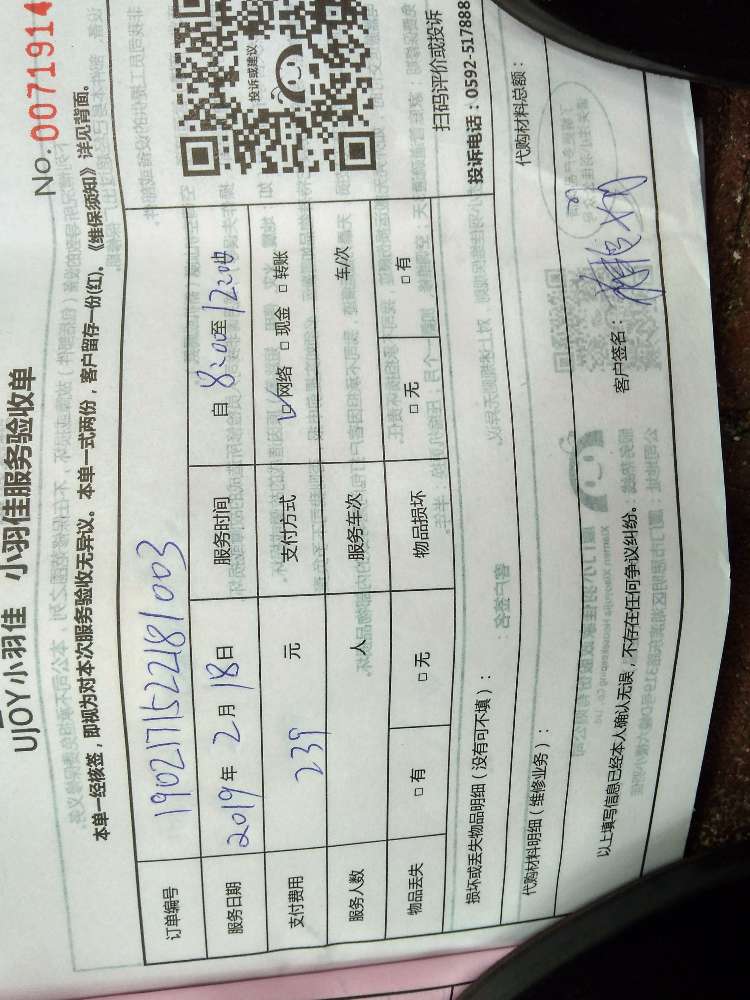 No. 0071914
UJOY小羽佳 小羽佳服务验收单
本单一经核签，即视为对本次服务验收无异议。本单一式两份，客户留存一份(红)。《维保须知》详见背面。
订单编号 19021715221181003
服务日期 2019年2月18日 服务时间 自8:00至12:00
支付费用 239 元 支付方式 ☑网络 □现金 □转账
服务人数 人 服务车次 车/次
物品丢失 □有 □无 物品损坏 □无 □有
投诉或建议
扫码评价或投诉
投诉电话：0592-517888
损坏或丢失物品明细（没有可不填）：
代购材料明细（维修业务）： 代购材料总额：
以上填写信息已经本人确认无误，不存在任何争议纠纷。 客户签名：